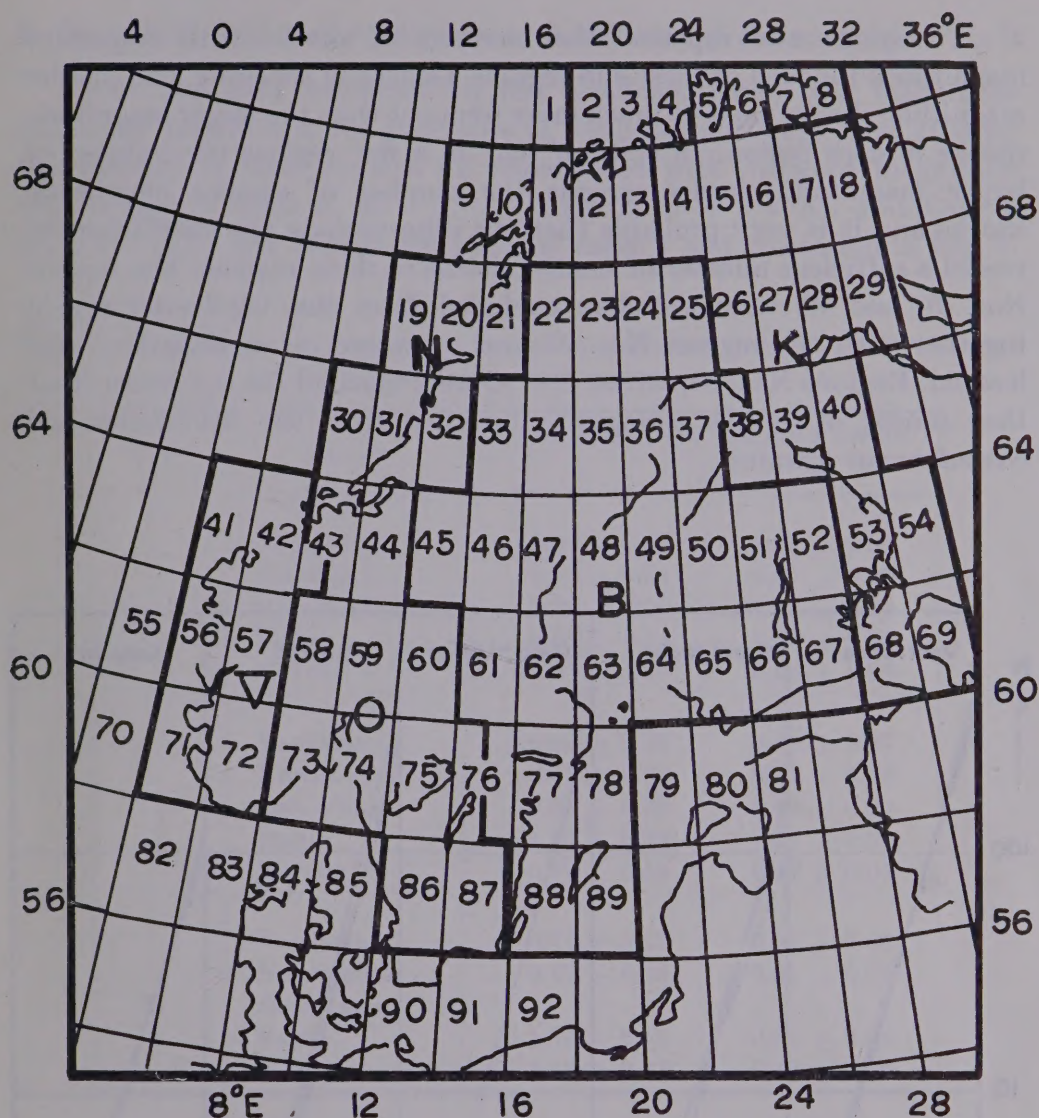 4 0 4 8 12 16 20 24 28 32 36°E
1 2 3 4 5 6 7 8
68 9 10 11 12 13 14 15 16 17 18 68
19 20 21 22 23 24 25 26 27 28 29
N K
64 30 31 32 33 34 35 36 37 38 39 40 64
41 42 43 44 45 46 47 48 49 50 51 52 53 54
B
55 56 57 58 59 60 61 62 63 64 65 66 67 68 69
60 V O 60
70 71 72 73 74 75 76 77 78 79 80 81
82 83 84 85 86 87 88 89
56 56
90 91 92
8°E 12 16 20 24 28